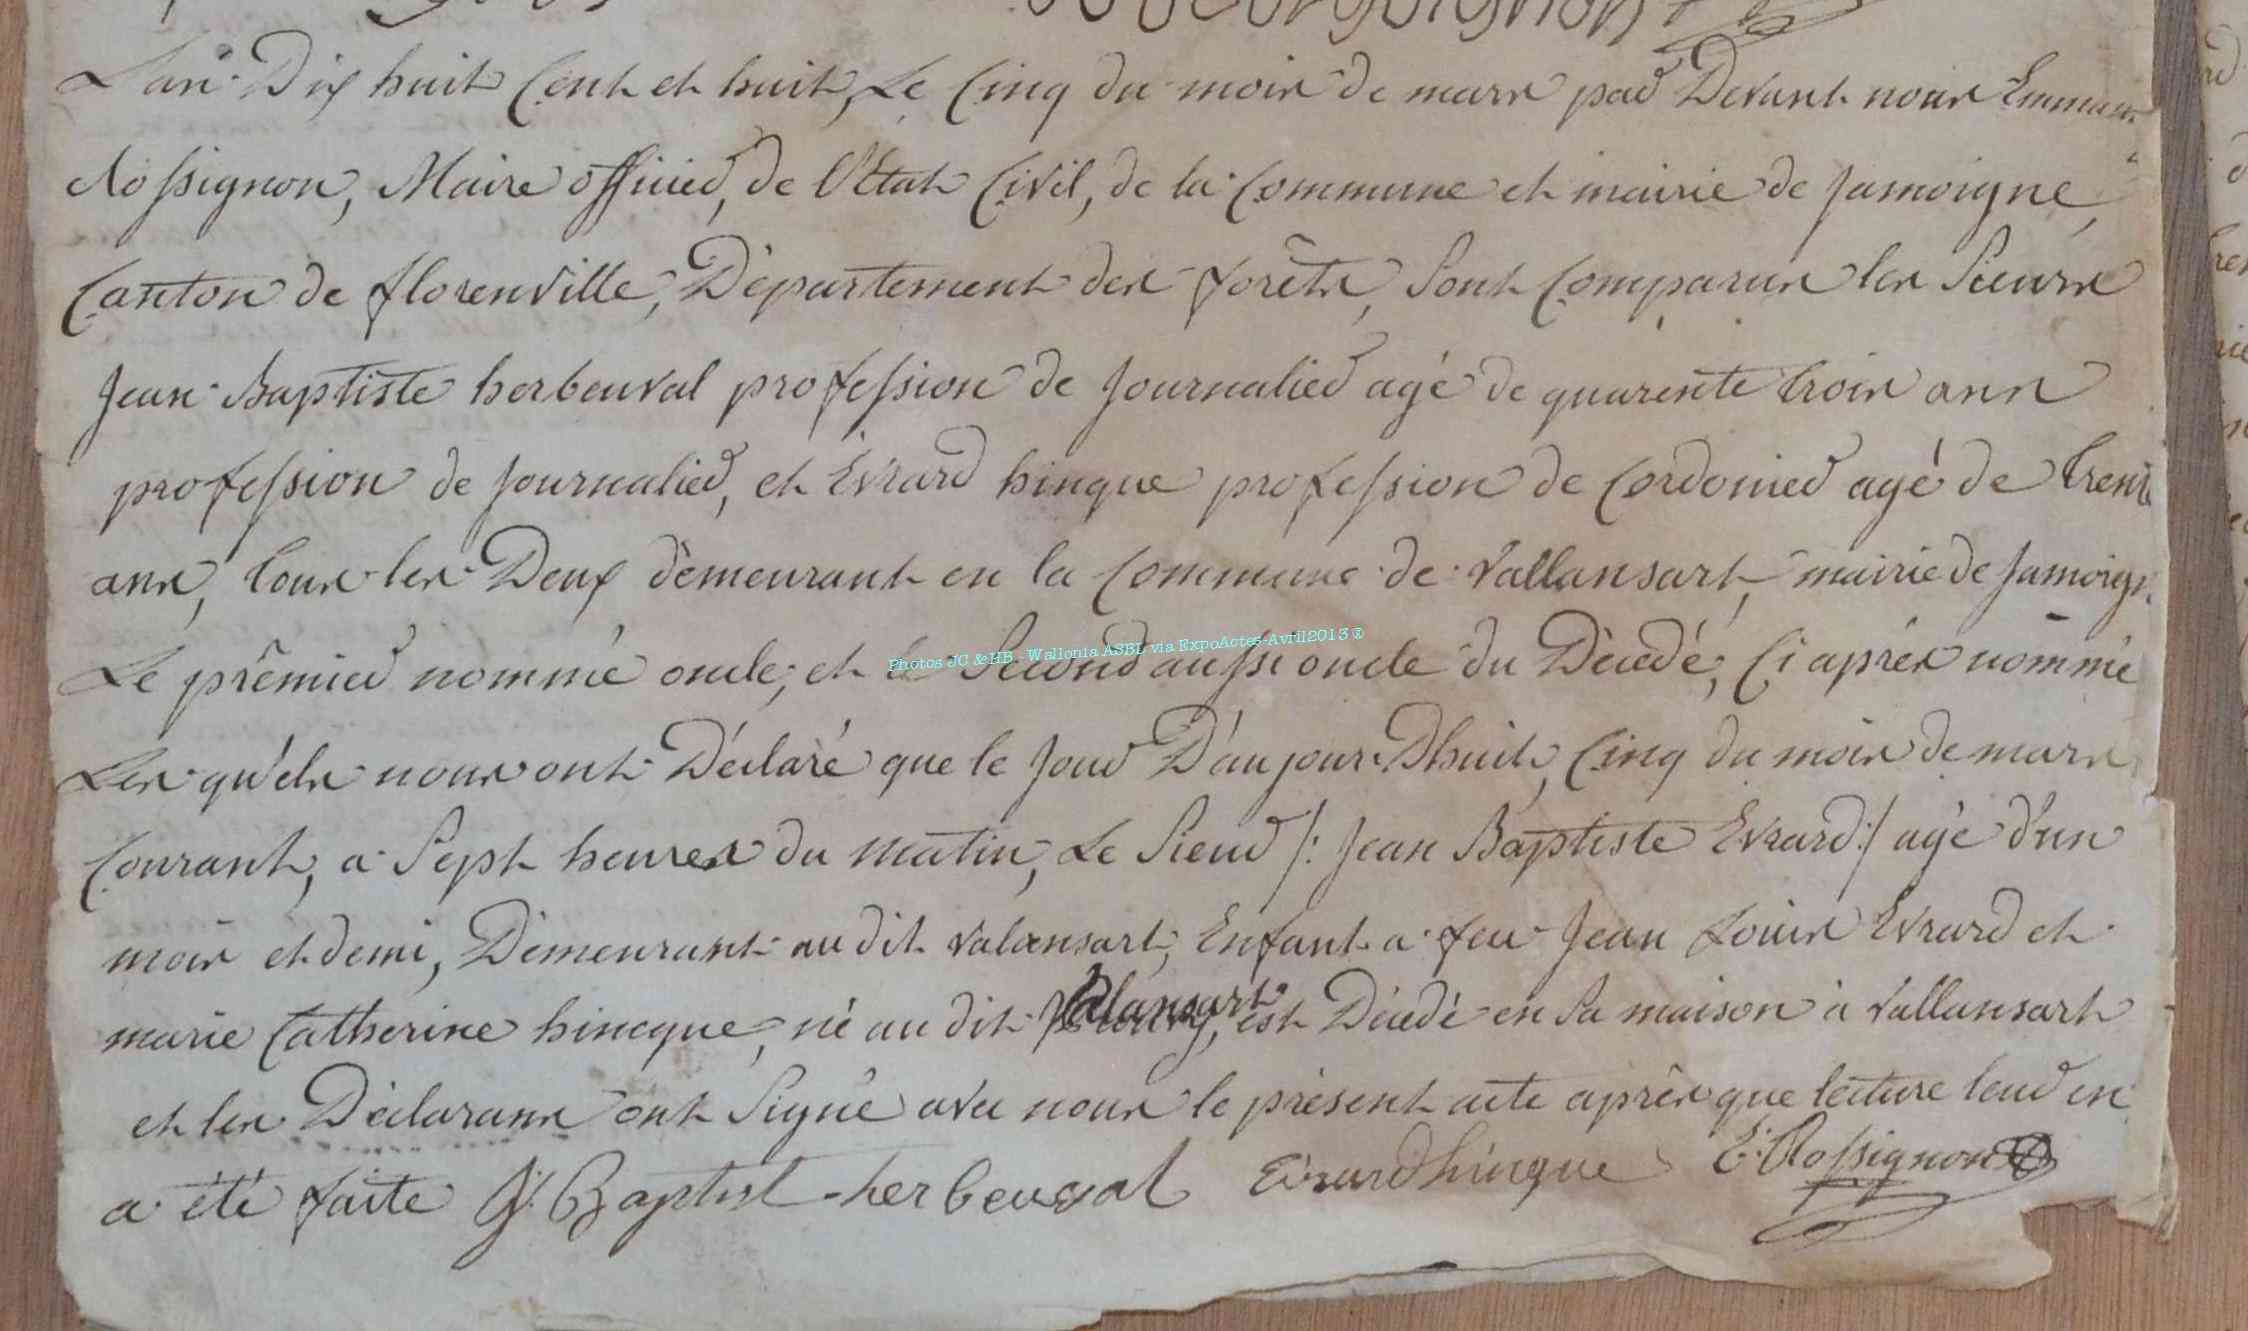 L'an Dix huit Cent et huit, Le Cinq du mois de mars par Devant nous
Rossignon, Maire officier, de l'Etat Civil, de la Commune et mairie de Jamoigne,
Canton de florenville, Département des forêts, Sont Comparus les Sieurs
Jean Baptiste herbeuval profession de Journalier agé de quarente trois ans
profession de Journalier, et Evrard hinque profession de Cordonier agé de
ans, tous les Deux démeurant en la Commune de Vallansart, mairie de
Le prêmier nommé oncle, et le Second aussi oncle du Décédé, Ci après nommé
Les qu'els nous ont Déclaré que le Jour D'aujour Dhuit, Cinq du mois de mars
Courant, a Sept heures du matin, Le Sieur /: Jean Baptiste Evrard :/ agé d'un
mois et demi, Démeurant au dit valansart, Enfant a feu Jean Louis Evrard et
marie Catherine hincque, né au dit Valansart, est Décédé en Sa maison à Vallansart
et les Déclarans ont Signé avec nous le présent acte après que lécture leur en
a été faite J. Baptist herbeuval Evrard hinque E. Rossignon
Photos JC & HB - Wallonia ASBL via ExpoActes-Avril2013 ®